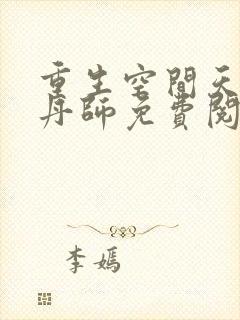 重生空間天
丹師免費閱
李媽